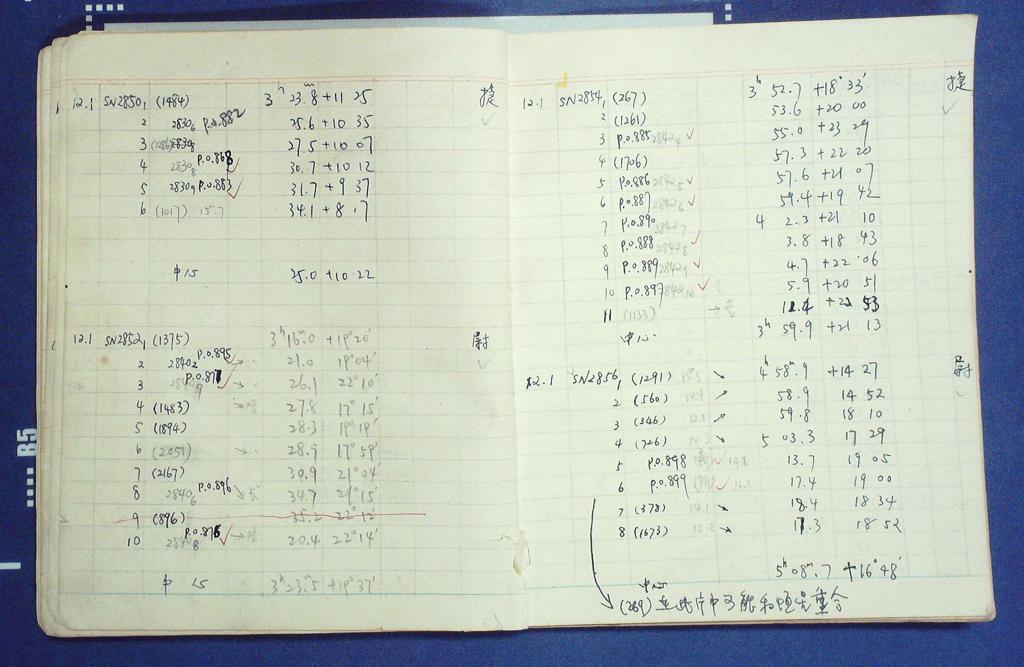 12.1 SN2850, (1484) 3h 23.8 +11 25 捷
2 28306 P.O.882 25.6 +10 35
3 27.5 +10 07
4 28308 P.O.868 30.7 +10 12
5 28309 P.O.883 31.7 +9 37
6 (1017) 15.7 34.1 +8 17
中 15 25.0 +10 22
12.1 SN2852, (1375) 3h 16m.0 +19°20′ 尉
2 28402 P.O.895 21.0 19°04′
3 P.O.871 26.1 22°10′
4 (1483) 27.8 17°15′
5 (1894) 28.3 19°19′
6 (2051) 28.9 17°59′
7 (2167) 30.9 21°04′
8 28406 P.O.896 34.7 21°15′
9 (896) 35.2 22°12′
10 28408 P.O.875 20.4 22°14′
中 15 3h 23m.5 +19°37′
12.1 SN2854, (267) 3h 52.7 +18°33′ 捷
2 (1261) 53.6 +20 00
3 P.O.885 28424 55.0 +23 29
4 (1706) 57.3 +22 20
5 P.O.886 28425 57.6 +21 07
6 P.O.887 28426 59.4 +19 42
7 P.O.890 28427 4 2.3 +21 10
8 P.O.888 28428 3.8 +18 43
9 P.O.889 28429 4.7 +22 06
10 P.O.897 284210 5.9 +20 51
11 (1133) 12.4 +21 53
中心 3h 59.9 +21 13
12.1 SN2856, (1291) 4h 58m.9 +14 27 尉
2 (560) 58.9 14 52
3 (346) 59.8 18 10
4 (726) 5 03.3 17 29
5 P.O.898 14.8 13.7 19 05
6 P.O.899 16.2 17.4 19 00
7 (378) 14.1 18.4 18 34
8 (1673) 11.3 18 52
中心 5h 08m.7 +16°48′
(269) 在此片中可能和恒星重合
B5